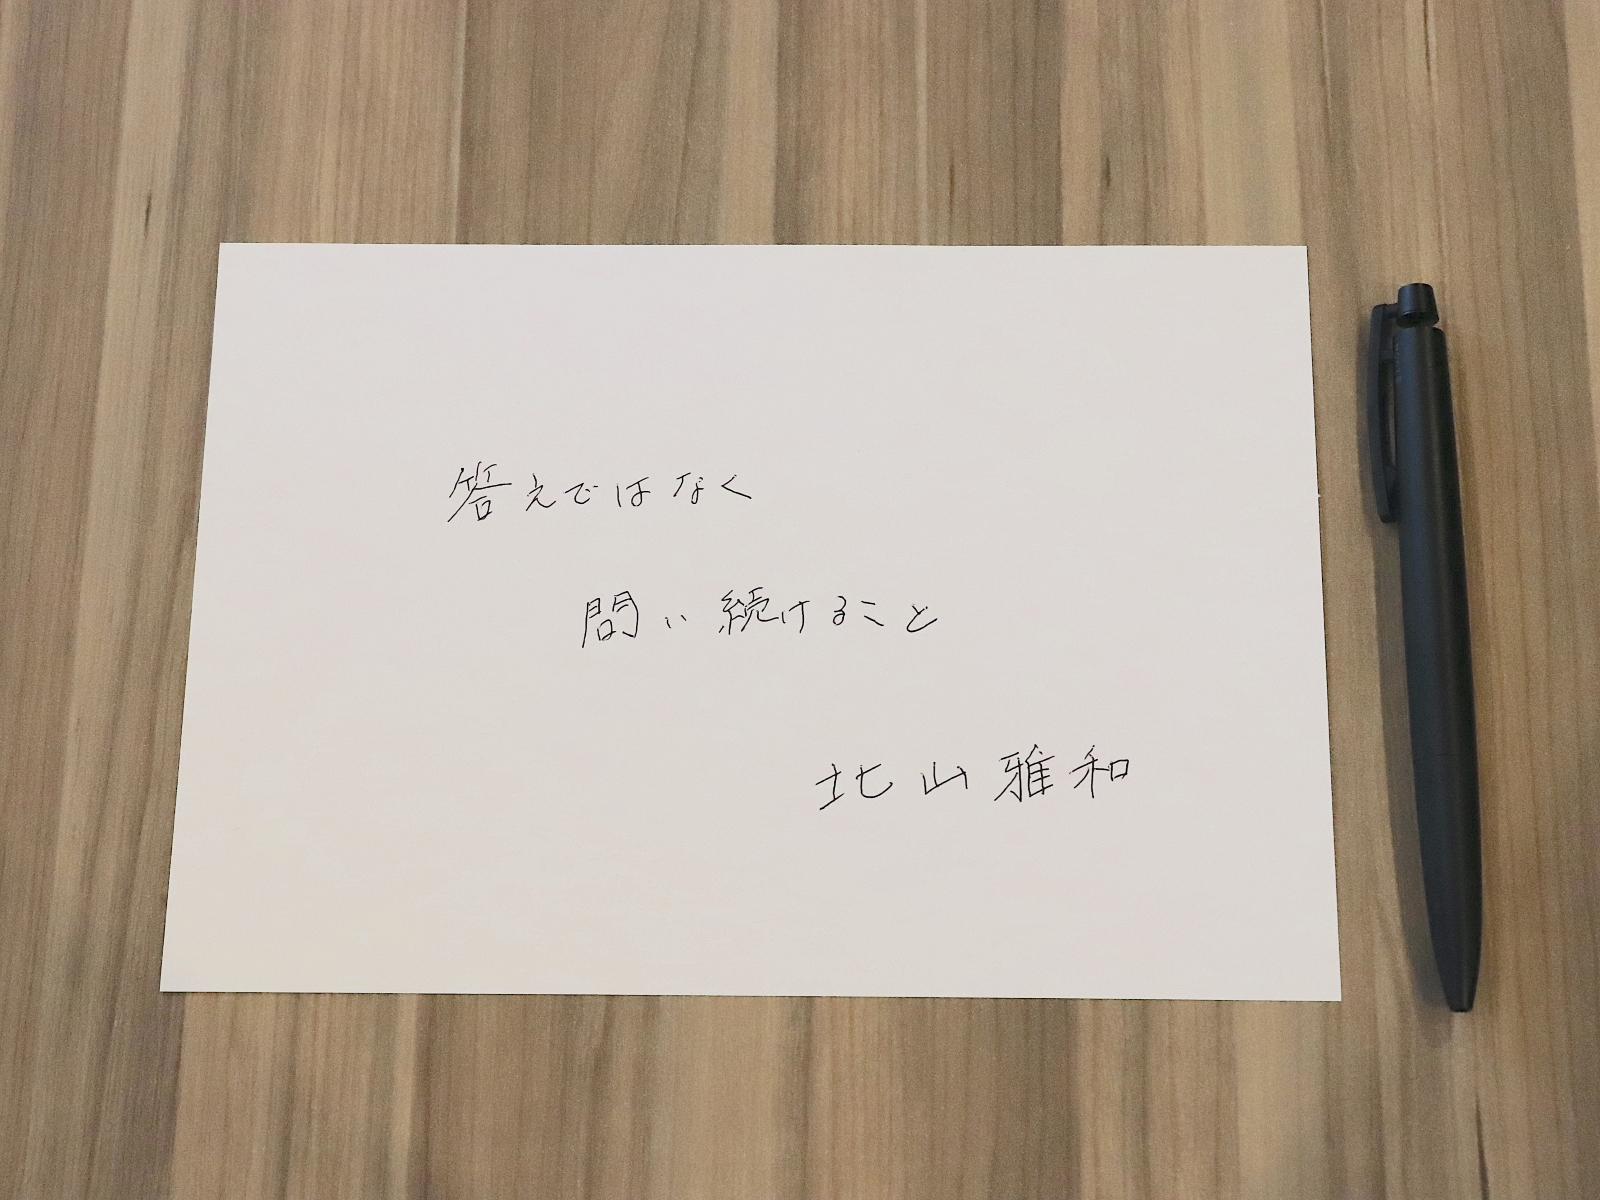 答えではなく
問い続けること
北山雅和